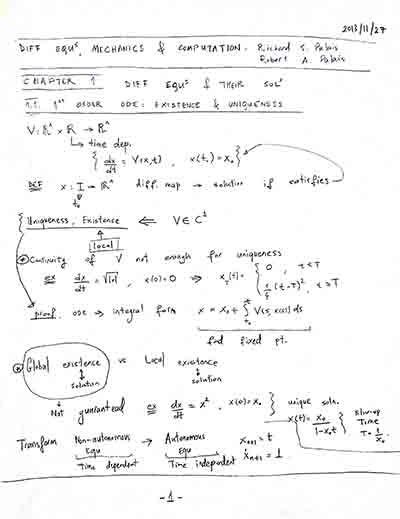 2013/11/27
DIFF EQUˢ, MECHANICS & COMPUTATION: Richard S. Palais
Robert A. Palais
CHAPTER 1 DIFF EQUˢ & THEIR SOLˢ
1.1. 1ˢᵗ ORDER ODE: EXISTENCE & UNIQUENESS
V: ℝⁿ × ℝ → ℝⁿ
↳ time dep.
{ dx/dt = V(x,t) , x(t₀) = x₀ }
DEF x: I → ℝⁿ diff. map → solution if satisfies
t₀
{ Uniqueness, Existence ⇐ V ∈ C¹
local
* Continuity of V not enough for uniqueness
ex dx/dt = √|x| , x(0) = 0 ⇒ x_T(t) = { 0 , t ≤ T
¼ (t-T)², t ≥ T
proof. ODE → integral form x = x₀ + ∫ V(s, x(s)) ds
find fixed pt.
* Global existence vs Local existence
solution solution
Not guaranteed ex dx/dt = x² , x(0) = x₀ } unique soln.
x(t) = x₀/(1-x₀t) } Blow-up Time T = 1/x₀
Transform Non-autonomous Equ → Autonomous Equ xₙ₊₁ = t
Time dependent Time independent ẋₙ₊₁ = 1
- 1 -